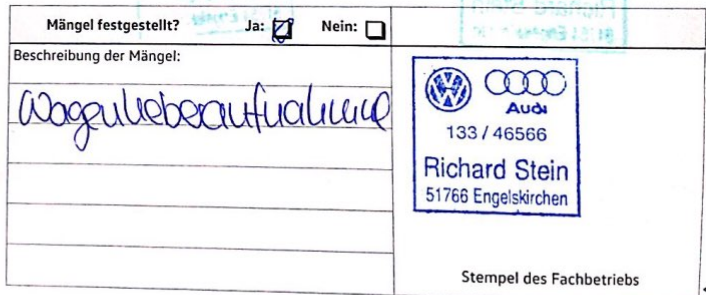 Mängel festgestellt? Ja: Nein:
Beschreibung der Mängel:
Wagenheberaufnahme
Audi
133 / 46566
Richard Stein
51766 Engelskirchen
Stempel des Fachbetriebs